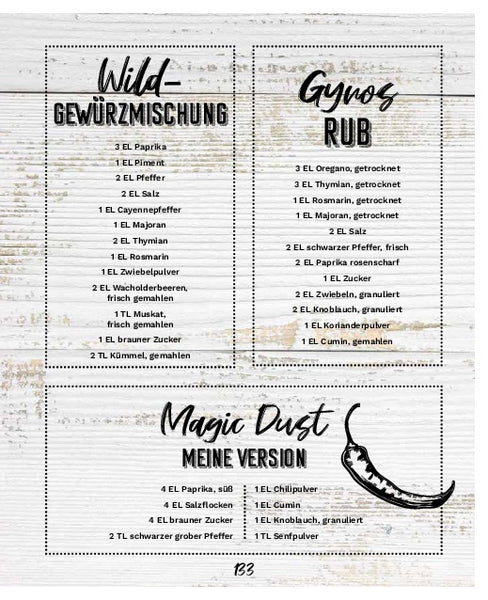 Wild-
GEWÜRZMISCHUNG
3 EL Paprika
1 EL Piment
2 EL Pfeffer
2 EL Salz
1 EL Cayennepfeffer
1 EL Majoran
2 EL Thymian
1 EL Rosmarin
1 EL Zwiebelpulver
2 EL Wacholderbeeren,
frisch gemahlen
1 TL Muskat,
frisch gemahlen
1 EL brauner Zucker
2 TL Kümmel, gemahlen
Gyros
RUB
3 EL Oregano, getrocknet
3 EL Thymian, getrocknet
1 EL Rosmarin, getrocknet
1 EL Majoran, getrocknet
2 EL Salz
2 EL schwarzer Pfeffer, frisch
2 EL Paprika rosenscharf
1 EL Zucker
2 EL Zwiebeln, granuliert
2 EL Knoblauch, granuliert
1 EL Korianderpulver
1 EL Cumin, gemahlen
Magic Dust
MEINE VERSION
4 EL Paprika, süß
4 EL Salzflocken
4 EL brauner Zucker
2 TL schwarzer grober Pfeffer
1 EL Chilipulver
1 EL Cumin
1 EL Knoblauch, granuliert
1 TL Senfpulver
133